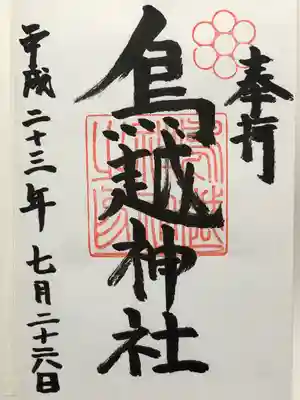 奉拝
鳥越神社
平成二十三年 七月二十六日